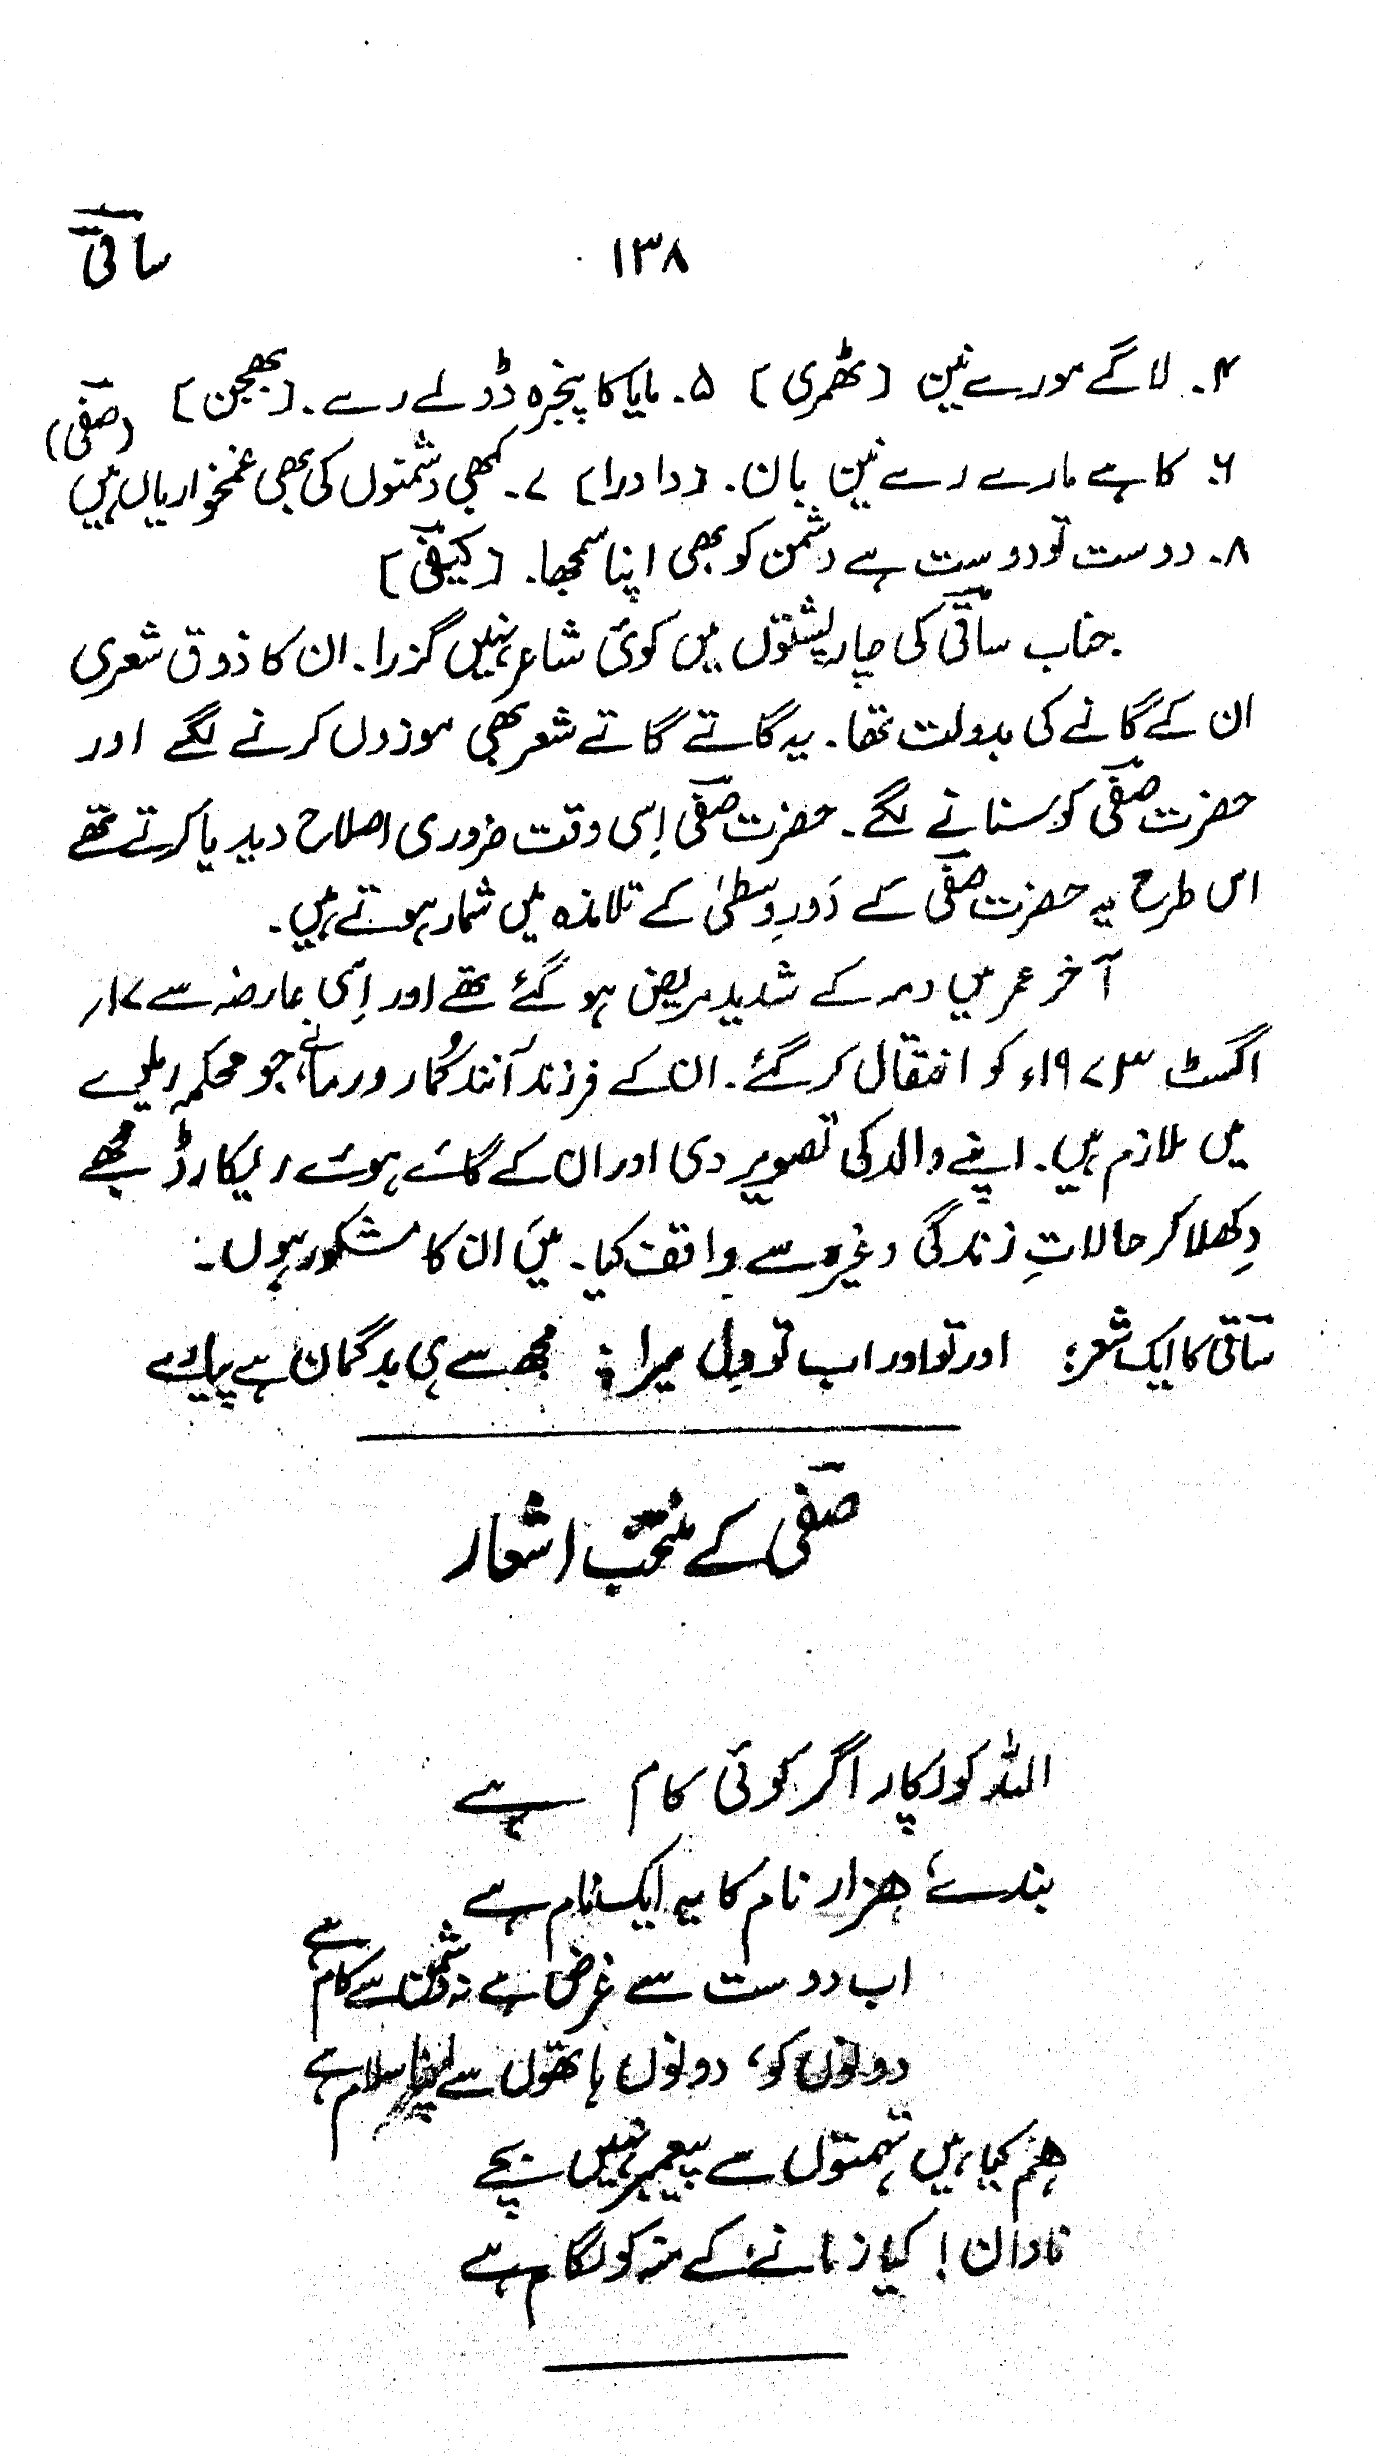 ۱۳۸ ساقیؔ
۴۔ لاگے مورے نین [ٹھمری] ۵۔ مایا کا پنجرہ ڈولے رے۔ [بھجن]
۶۔ کاہے مارے رے نین بان۔ [دادرا] ۷۔ کبھی دشمنوں کی بھی غمخواریاں ہیں (صفیؔ)
۸۔ دوست تو دوست ہے دشمن کو بھی اپنا سمجھا۔ [کیفیؔ]
جناب ساقیؔ کی چار پشتوں میں کوئی شاعر نہیں گزرا۔ ان کا ذوق شعری
ان کے گانے کی بدولت تھا۔ یہ گاتے گاتے شعر بھی موزوں کرنے لگے اور
حضرت صفیؔ کو سنانے لگے۔ حضرت صفیؔ اِسی وقت ضروری اصلاح دیدیا کرتے تھے
اس طرح یہ حضرت صفیؔ کے دَورِ وسطیٰ کے تلامذہ میں شمار ہوتے ہیں۔
آخر عمر میں دمہ کے شدید مریض ہو گئے تھے اور اِسی عارضہ سے ۱۷؍
اگسٹ ۱۹۷۳ء کو انتقال کر گئے۔ ان کے فرزند آنند کُمار ورما نے، جو محکمہ ریلوے
میں ملازم ہیں۔ اپنے والد کی تصویر دی اور ان کے گائے ہوئے ریکارڈ مجھے
دِکھلا کر حالاتِ زندگی وغیرہ سے واقف کیا۔ میں ان کا مشکور ہوں۔
ساقیؔ کا ایک شعر: اور تو اور اب تو دِل میرا ؛ مجھ سے ہی بدگمان ہے پیارے
صفیؔ کے منتخب اشعار
اللہ کو پکار اگر کوئی کام ہے
بندے ہزار نام کا یہ ایک نام ہے
اب دوست سے غرض ہے نہ دشمن سے کام ہے
دونوں کو، دونوں ہاتھوں سے اپنا سلام ہے
ہم کیا ہیں تہمتوں سے پیمبر نہیں بچے
نادان! کیا زمانے کے منہ کو لگام ہے